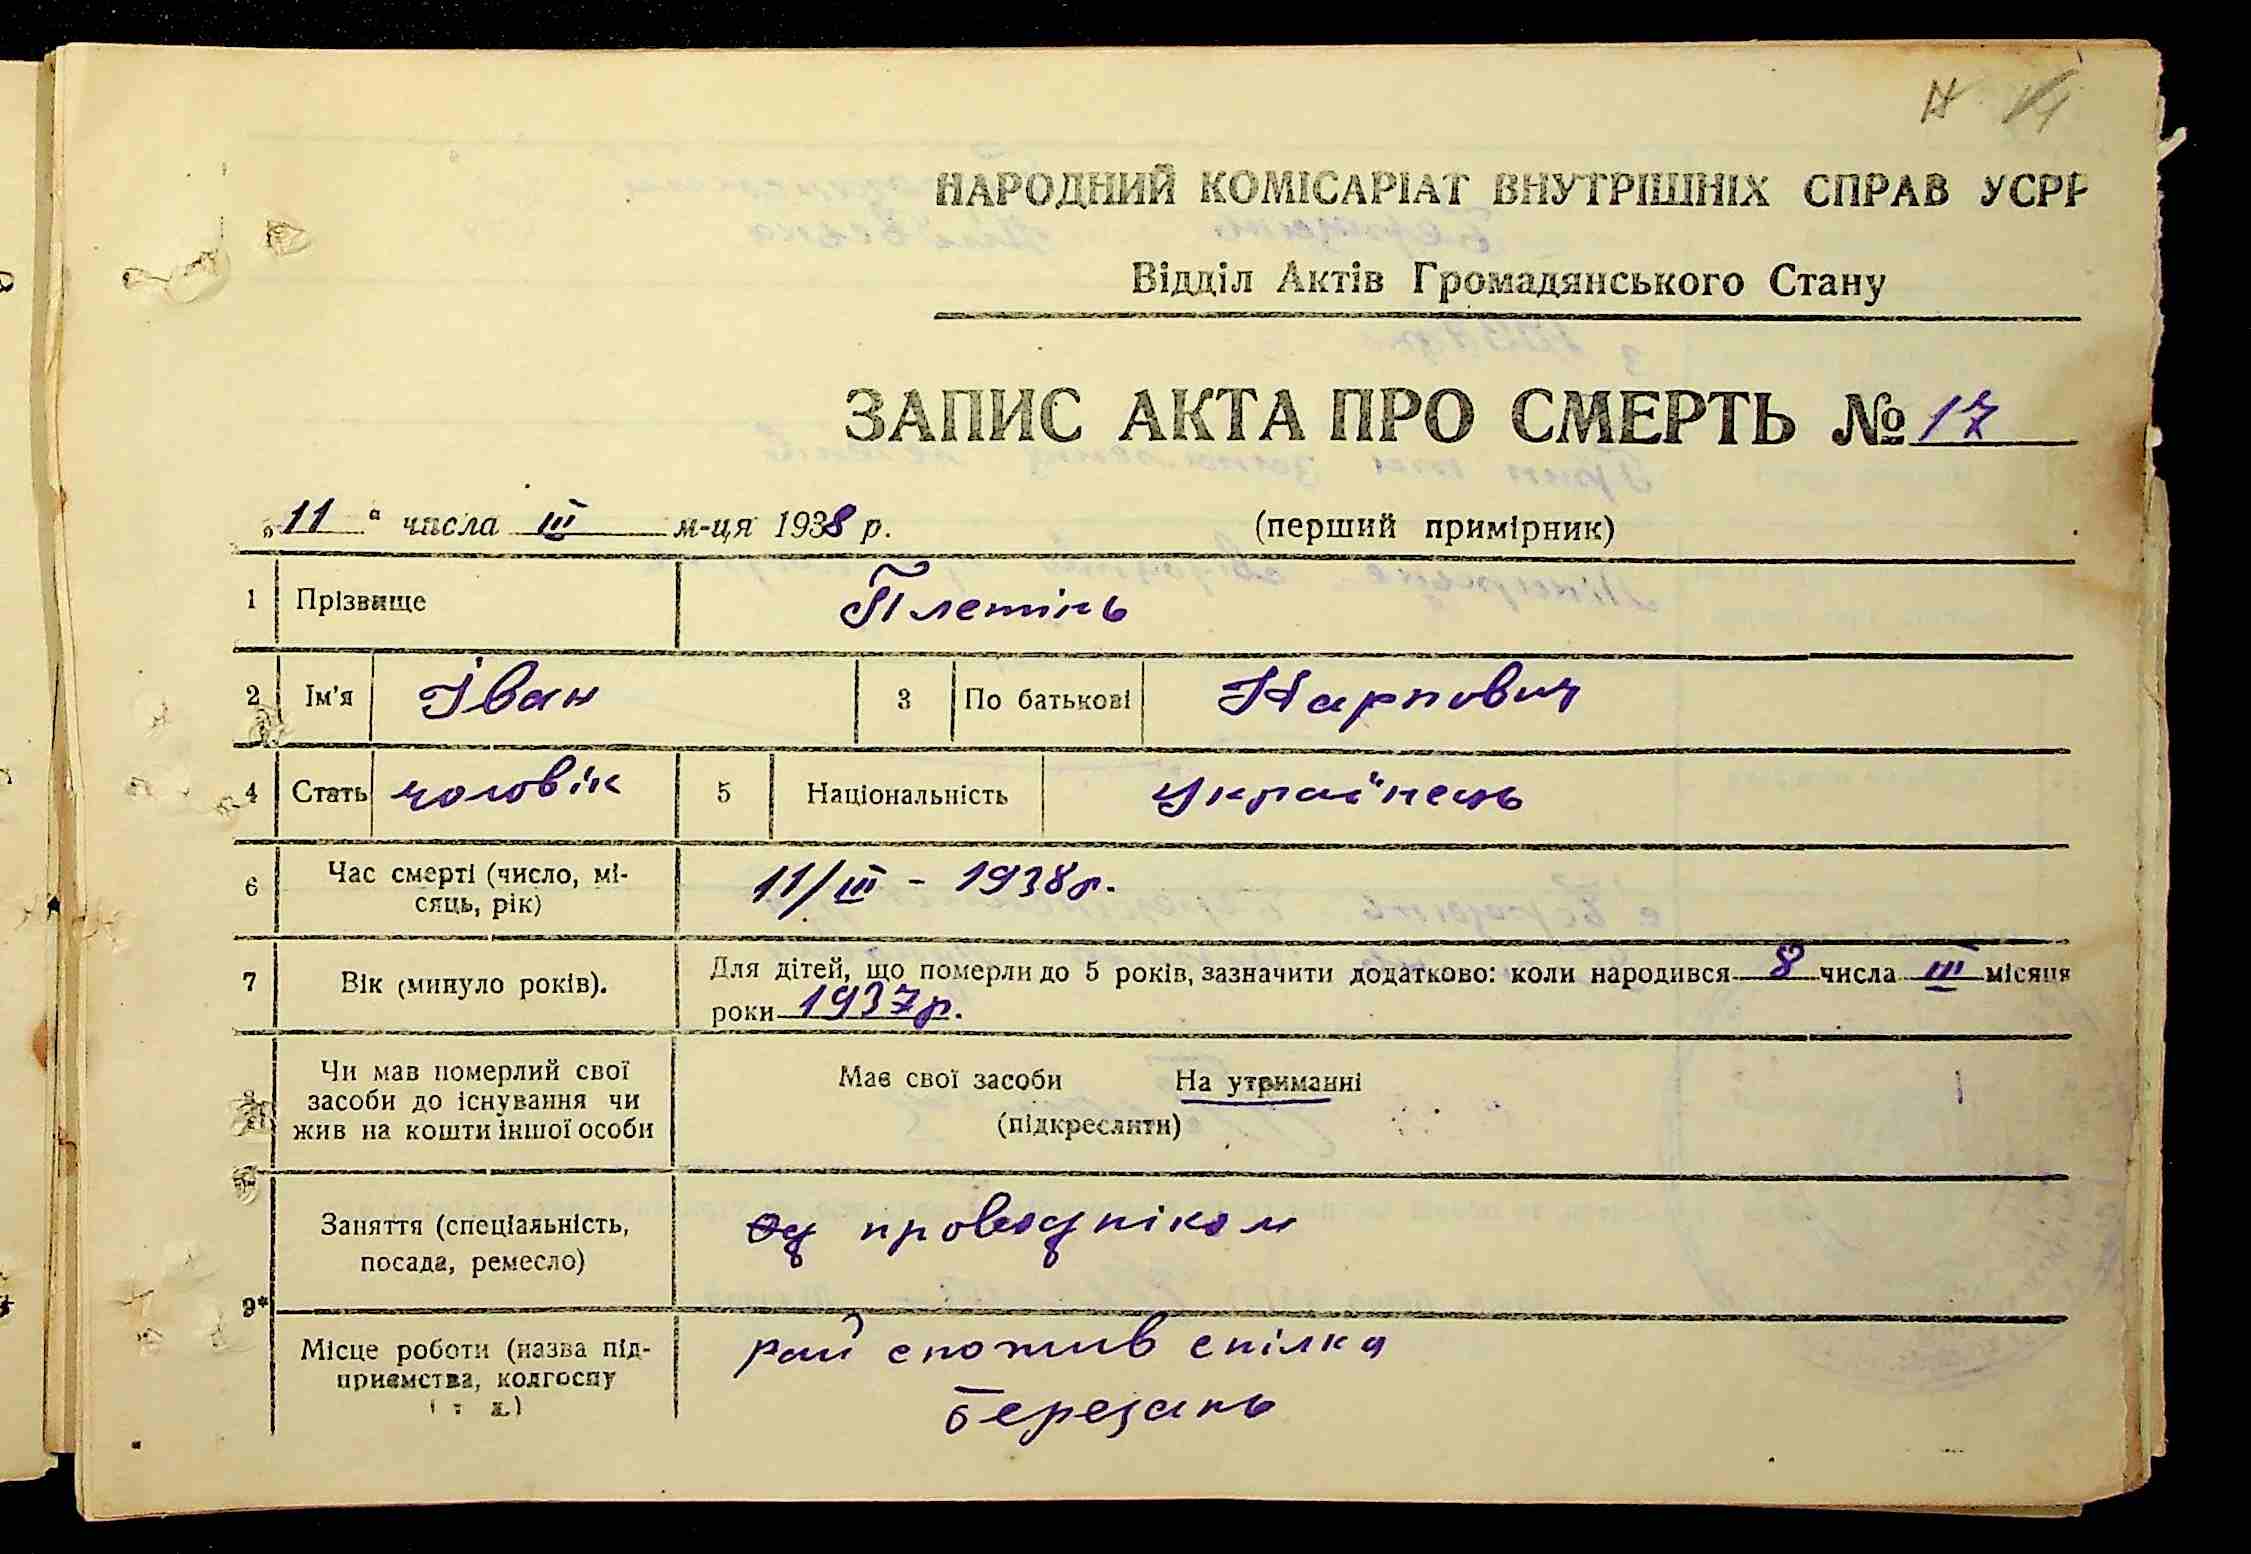 НАРОДНИЙ КОМІСАРІАТ ВНУТРІШНІХ СПРАВ УСРР
Відділ Актів Громадянського Стану
ЗАПИС АКТА ПРО СМЕРТЬ № 17
„11" числа III м-ця 1938 р. (перший примірник)
1 Прізвище Плетінь
2 Ім'я Іван 3 По батькові Карпович
4 Стать чоловік 5 Національність Українець
6 Час смерті (число, мі-
сяць, рік) 11/III - 1938р.
7 Вік (минуло років). Для дітей, що померли до 5 років, зазначити додатково: коли народився 8 числа III місяця
роки 1937р.
Чи мав померлий свої
засоби до існування чи
жив на кошти іншої особи
Має свої засоби На утриманні
(підкреслити)
9*
Заняття (спеціальність,
посада, ремесло)
проводніком
Місце роботи (назва під-
приємства, колгоспу
і т. д.)
рай спожив спілка
Березань